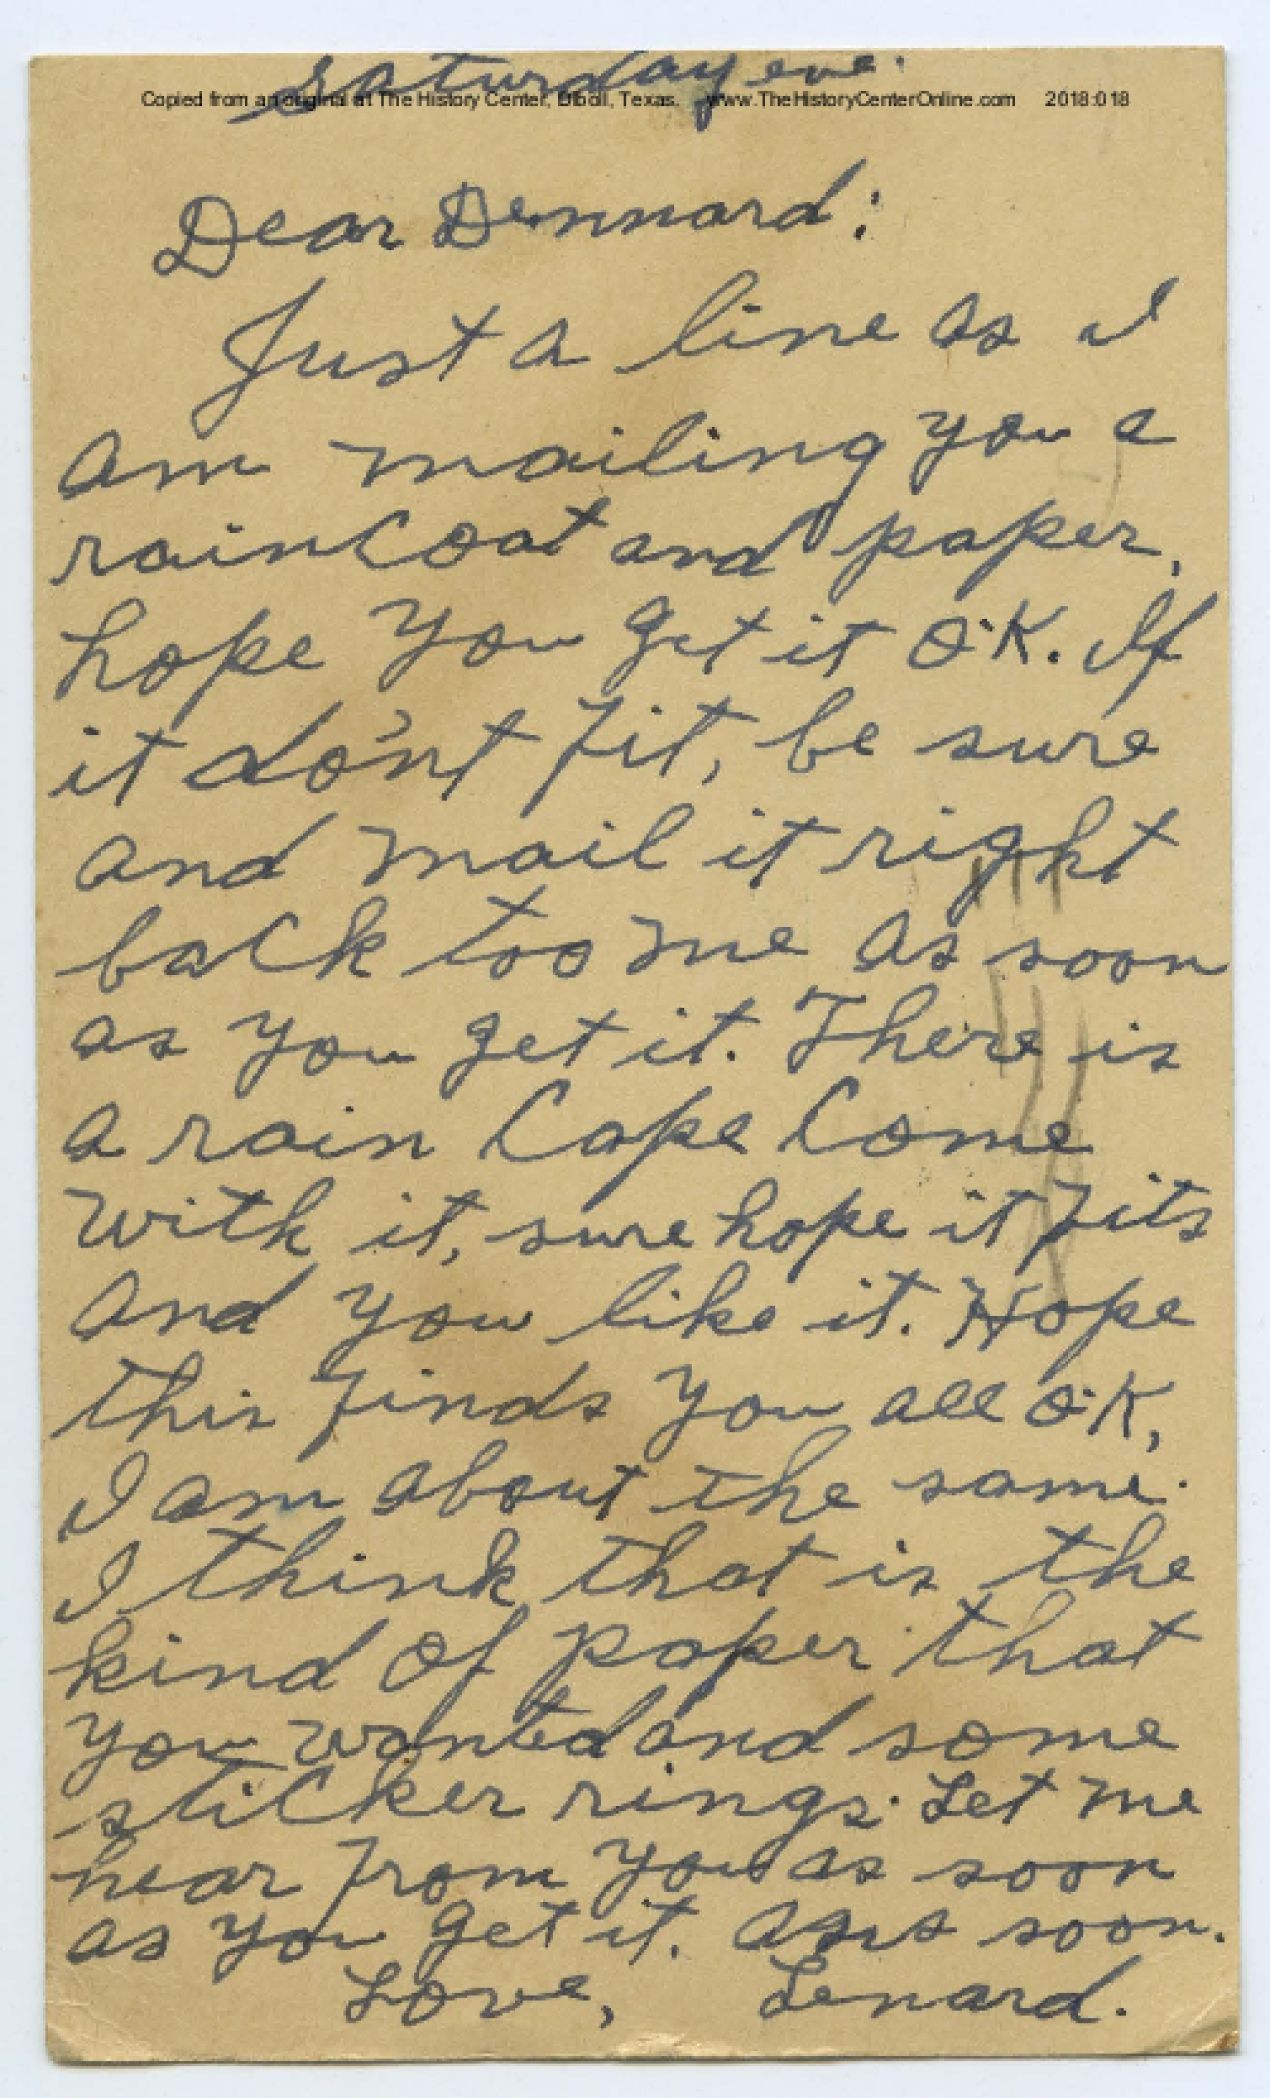 Saturday eve.
Copied from an original at The History Center, Diboll, Texas. www.TheHistoryCenterOnline.com 2018:018
Dear Dennard:
Just a line as I
am mailing you a
raincoat and paper,
hope you get it O.K. If
it do'nt fit, be sure
and mail it right
back too me as soon
as you get it. There is
a rain Cape Come
with it, sure hope it fits
and you like it. Hope
this finds you all O.K,
I am about the same.
I think that is the
kind of paper that
you wanted and some
sticker rings. Let me
hear from you as soon
as you get it. Ans soon.
Love, Lenard.